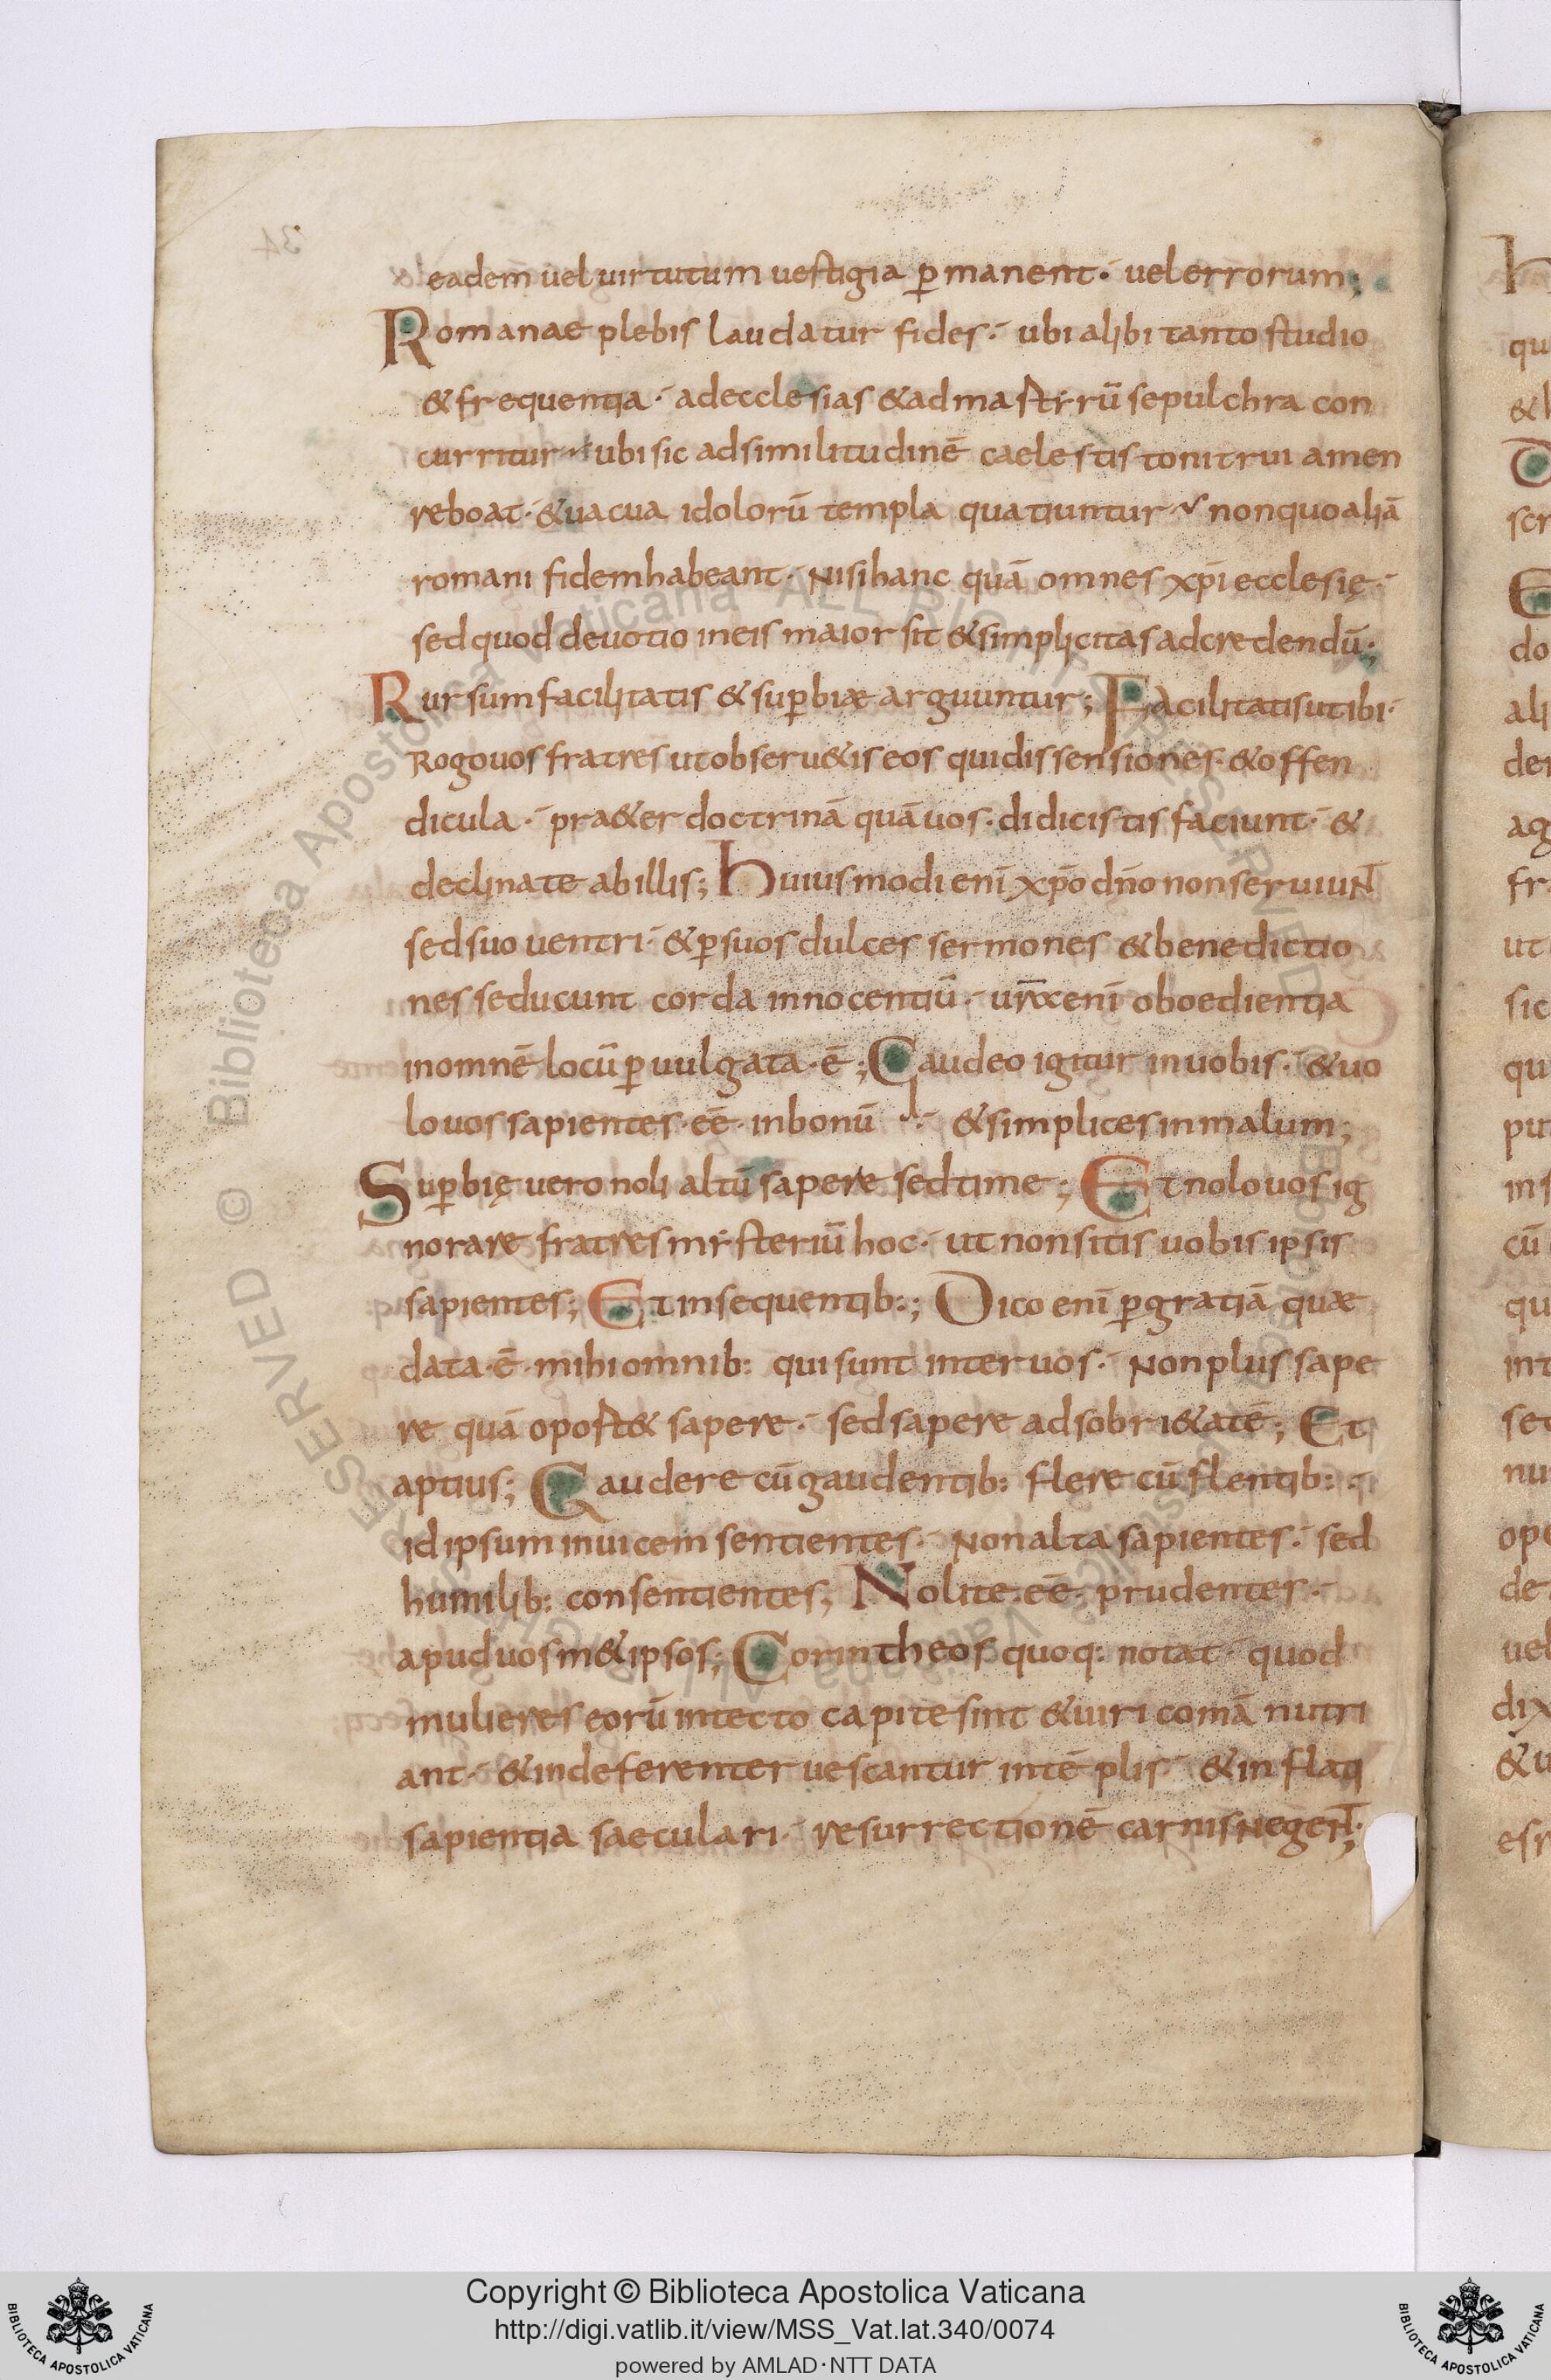 eadem uel uirtutum uestigia ꝑmanent· uel errorum;
Romanae plebis laudatur fides· ubi alibi tanto studio
& frequentia· ad ecclesias & ad martẏrū sepulchra con
curritur· ubi sic ad similitudinē caelestis tonitrui amen
reboat· & uacua idolorū templa quatiuntur· non quo aliā
romani fidem habeant· Nisi hanc quā omnes xp̄i ecclesię·
sed quod deuotio in eis maior sit & simplicitas ad credendū;
Rursum facilitatis & suꝑbiæ arguuntur; Facilitatis ut ibi·
Rogo uos fratres ut obseru&is eos qui dissensiones· & offen
dicula· pra&er doctrinā quā uos· didicistis faciunt· &
declinate ab illis; Huiusmodi enī xp̄o dn̄o non seruiuNT
sed suo uentri· & ꝑ suos dulces sermones & benedictio
nes seducunt corda innocentiū· ur̄a enī oboedientia
in omnē locū ꝑuulgata·ē; Gaudeo igitur in uobis· & uo
lo uos sapientes·eē· in bonū· & simplices in malum;
Suꝑbię uero noli altū sapere sed time; Et nolo uos ig
norare fratres mẏsteriū hoc· ut non sitis uobis ipsis
sapientes; Et in sequentib:; Dico enī ꝑ gratiā quæ
data·ē·mihi omnib: qui sunt inter uos· Non plus sape
re quā oport& sapere· sed sapere ad sobri&atē; Et
aptius; Gaudere cū gaudentib: flere cū flentib:·
id ipsum inuicem sentientes· Non alta sapientes· sed
humilib: consentientes; Nolite·eē· prudentes·
apud uosm&ipsos; Corintheos quoq: notat· quod
mulieres eorū intecto capite sint & uiri comā nutri
ant· & indeferenter uescantur in tēplis· & inflati
sapientia saeculari· resurrectionē carnis NegeNT;
Copyright © Biblioteca Apostolica Vaticana
http://digi.vatlib.it/view/MSS_Vat.lat.340/0074
powered by AMLAD·NTT DATA